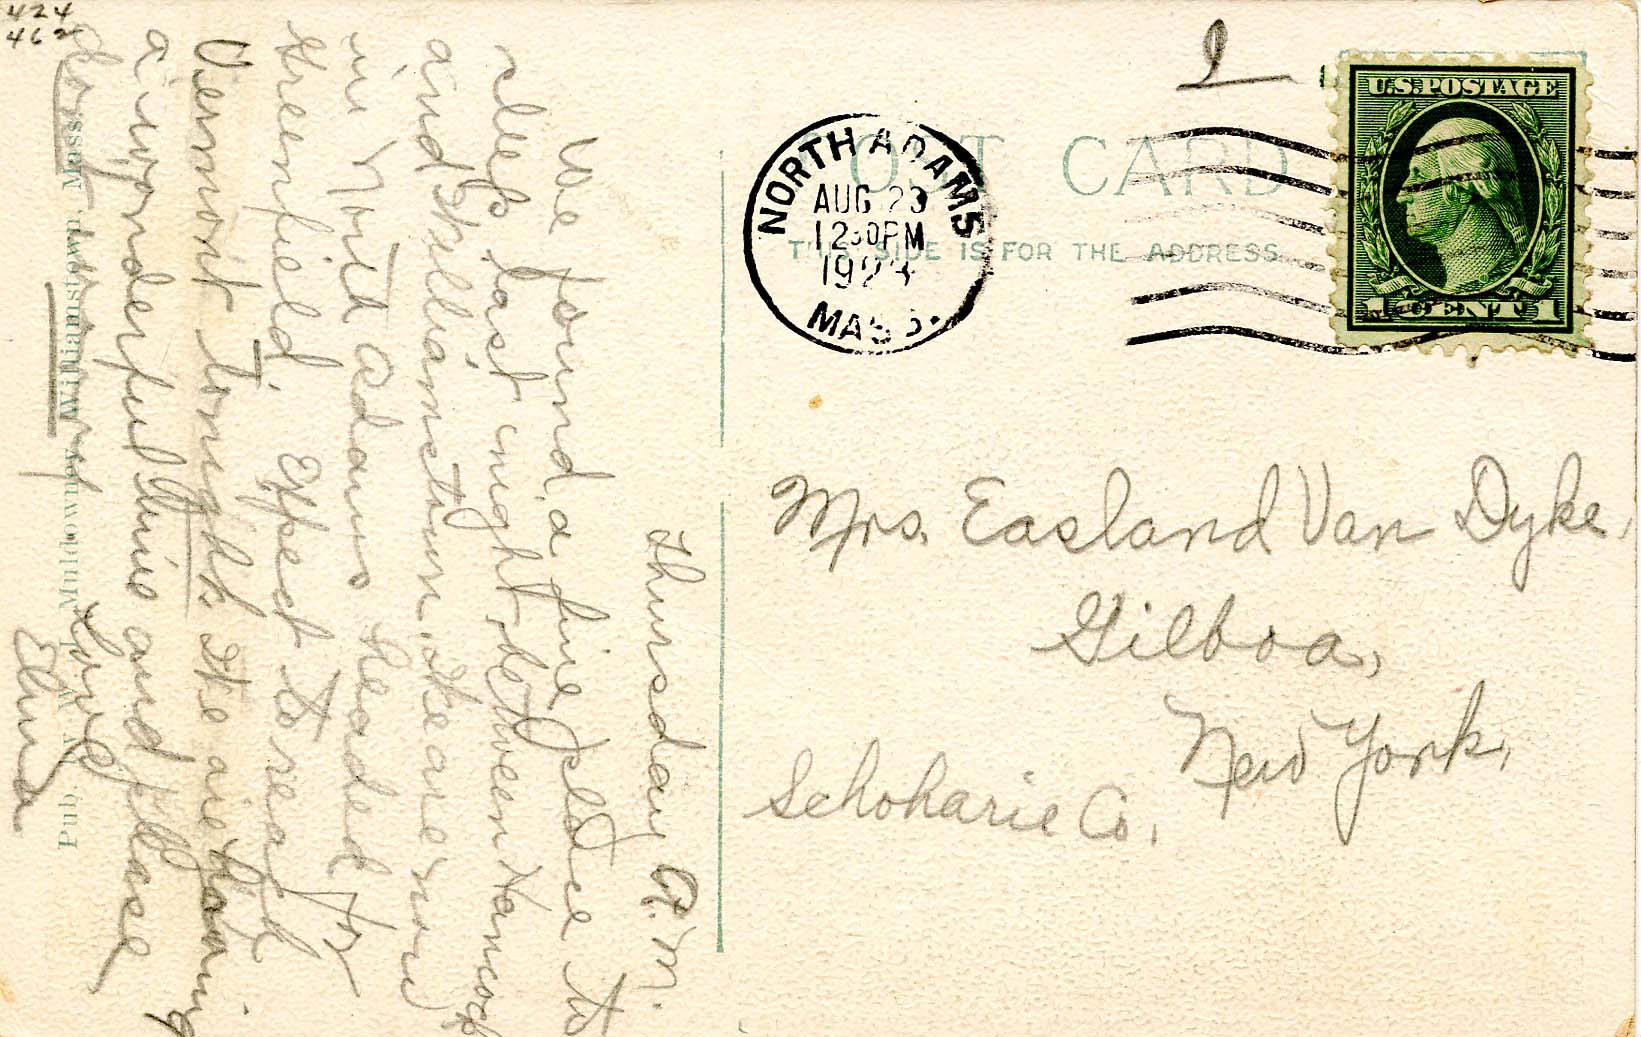 424
462
Thursday A.M.
We found a fine place to
sleep last night, between Hancock
and Williamstown. We are now
in North Adams headed for
Greenfield. Expect to reach
Vermont tonight. We are having
a wonderful time and please
don't worry
Love
Elma
Pub. by W. J. Muldowney, Williamstown, Mass.
POST CARD
THIS SIDE IS FOR THE ADDRESS
NORTH ADAMS
AUG 23
12 30 PM
192
MASS.
U.S. POSTAGE
1 CENT 1
Mrs. Easland Van Dyke,
Gilboa,
New York,
Schoharie Co.